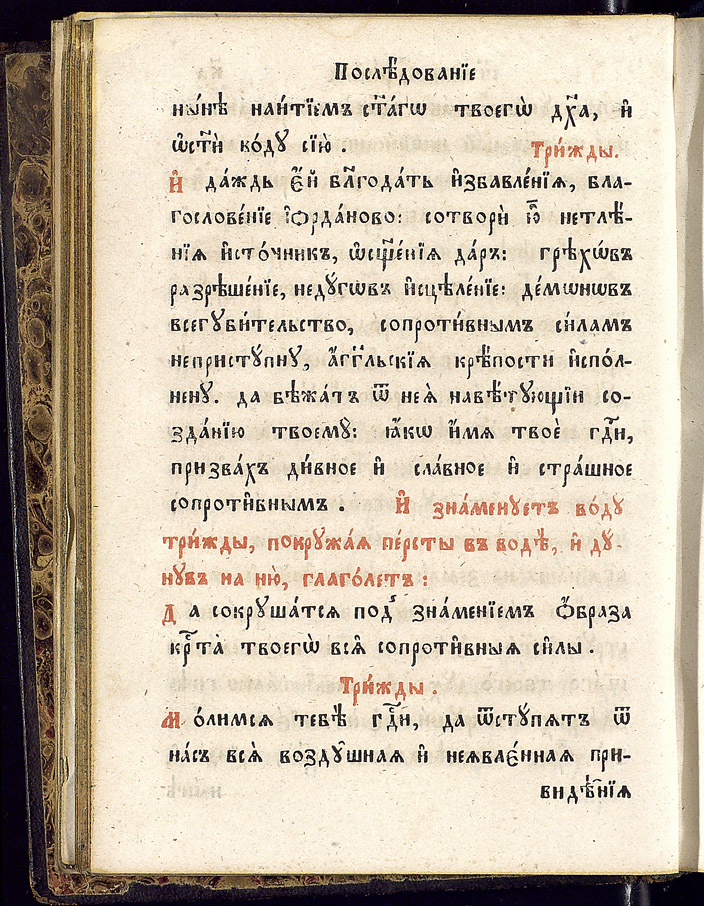 Послѣ́дованїе
ны́нѣ наи́тїемъ ст҃а́гѡ твоегѡ̀ дх҃а, и҆
ѡ҆ст҃ѝ во́дꙋ сїю̀. Три́жды.
И҆ да́ждь є҆́й бл҃года́ть и҆збавле́нїѧ, бла-
гослове́нїе і҆ѻрда́ново: сотворѝ ю҆̀ нетлѣ́-
нїѧ и҆сто́чникъ, ѡ҆сщ҃е́нїѧ да́ръ: грѣхѡ́въ
разрѣше́нїе, недꙋ́гѡвъ и҆сцѣле́нїе: де́мѡнѡвъ
всегꙋби́тельство, сопроти́внымъ си́ламъ
непристꙋ́пнꙋ, а҆́гг҃льскїѧ крѣ́пости и҆спо́л-
ненꙋ. да бѣжа́тъ ѿ неѧ̀ навѣ́тꙋющїи со-
зда́нїю твоемꙋ̀: ꙗ҆́кѡ и҆́мѧ твоѐ гдⷭ҇и,
призва́хъ ди́вное и҆ сла́вное и҆ стра́шное
сопроти́внымъ. И҆ зна́менꙋетъ во́дꙋ
три́жды, покрꙋжа́ѧ пе́рсты въ водѣ̀, и҆ дꙋ́-
нꙋвъ на ню̀, глаго́летъ:
Да сокрꙋша́тсѧ под̾ зна́менїемъ ѻ҆́браза
крⷭ҇та̀ твоегѡ̀ всѧ̑ сопроти̑вныѧ си̑лы.
Три́жды.
Мо́лимсѧ тебѣ̀ гдⷭ҇и, да ѿстꙋ́пѧтъ ѿ
на́съ всѧ̑ возд̑ꙋшнаѧ и҆ неѧвлє́ннаѧ при-
видѣ̑нїѧ